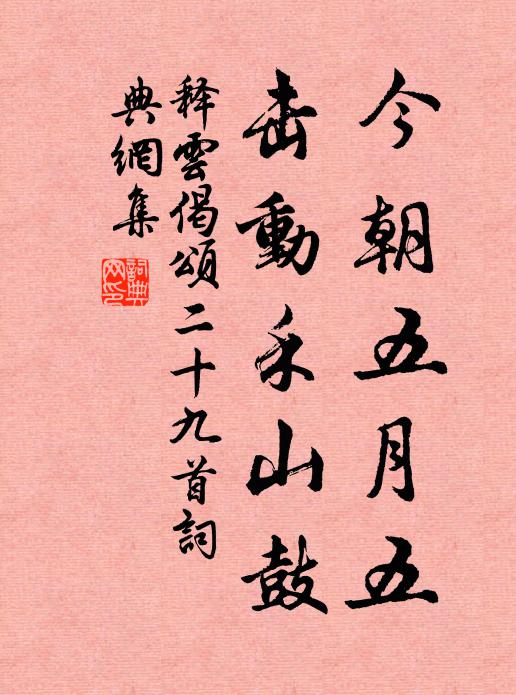 今朝五月五
击動禾山鼓
释雲偈頌二十九首詞
典網集
詞典網印